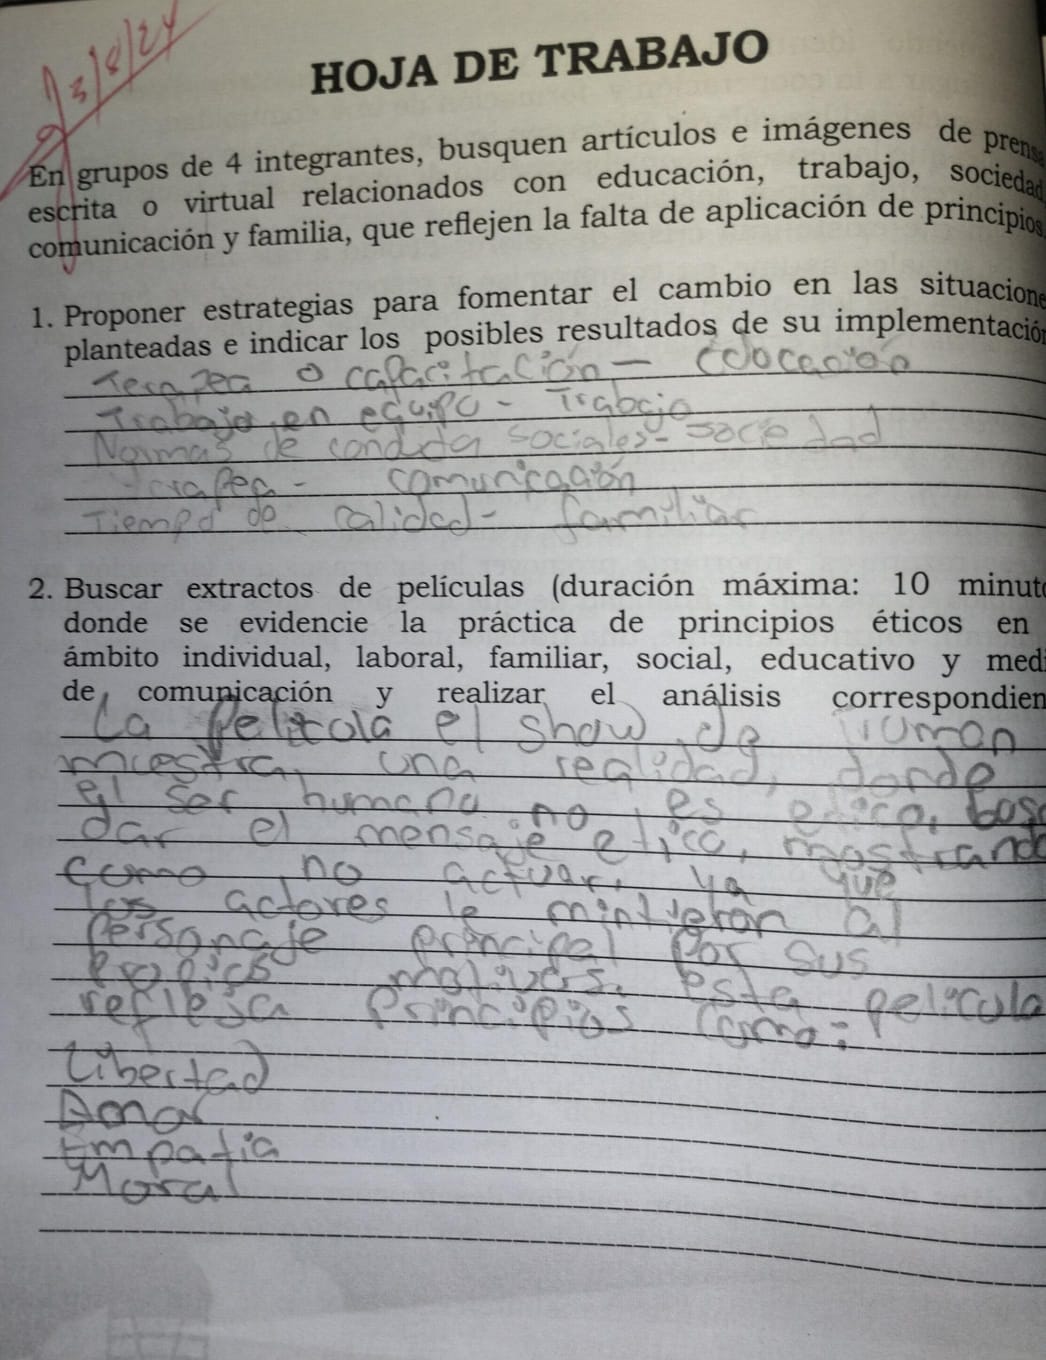 13/8/24
HOJA DE TRABAJO
En grupos de 4 integrantes, busquen artículos e imágenes de prensa
escrita o virtual relacionados con educación, trabajo, sociedad
comunicación y familia, que reflejen la falta de aplicación de principios
1. Proponer estrategias para fomentar el cambio en las situacione
planteadas e indicar los posibles resultados de su implementación
o capacitación -
Trabajo en equipo - Trabajo
Normas de conducta sociales - sociedad
comunicación
Tiempo de calidad - familiar
2. Buscar extractos de películas (duración máxima: 10 minuto
donde se evidencie la práctica de principios éticos en
ámbito individual, laboral, familiar, social, educativo y medi
de comunicación y realizar el análisis correspondien
La pelicola el show de Truman
muestra, una realidad, donde
el ser humano no es etico, bosc
dar el mensaje etico, mostrando
como no actuar, ya que
los actores le mintieron al
personaje principal por sus
propios motivos. esta pelicula
refleja principios como:
Libertad
Amor
Empatia
Moral